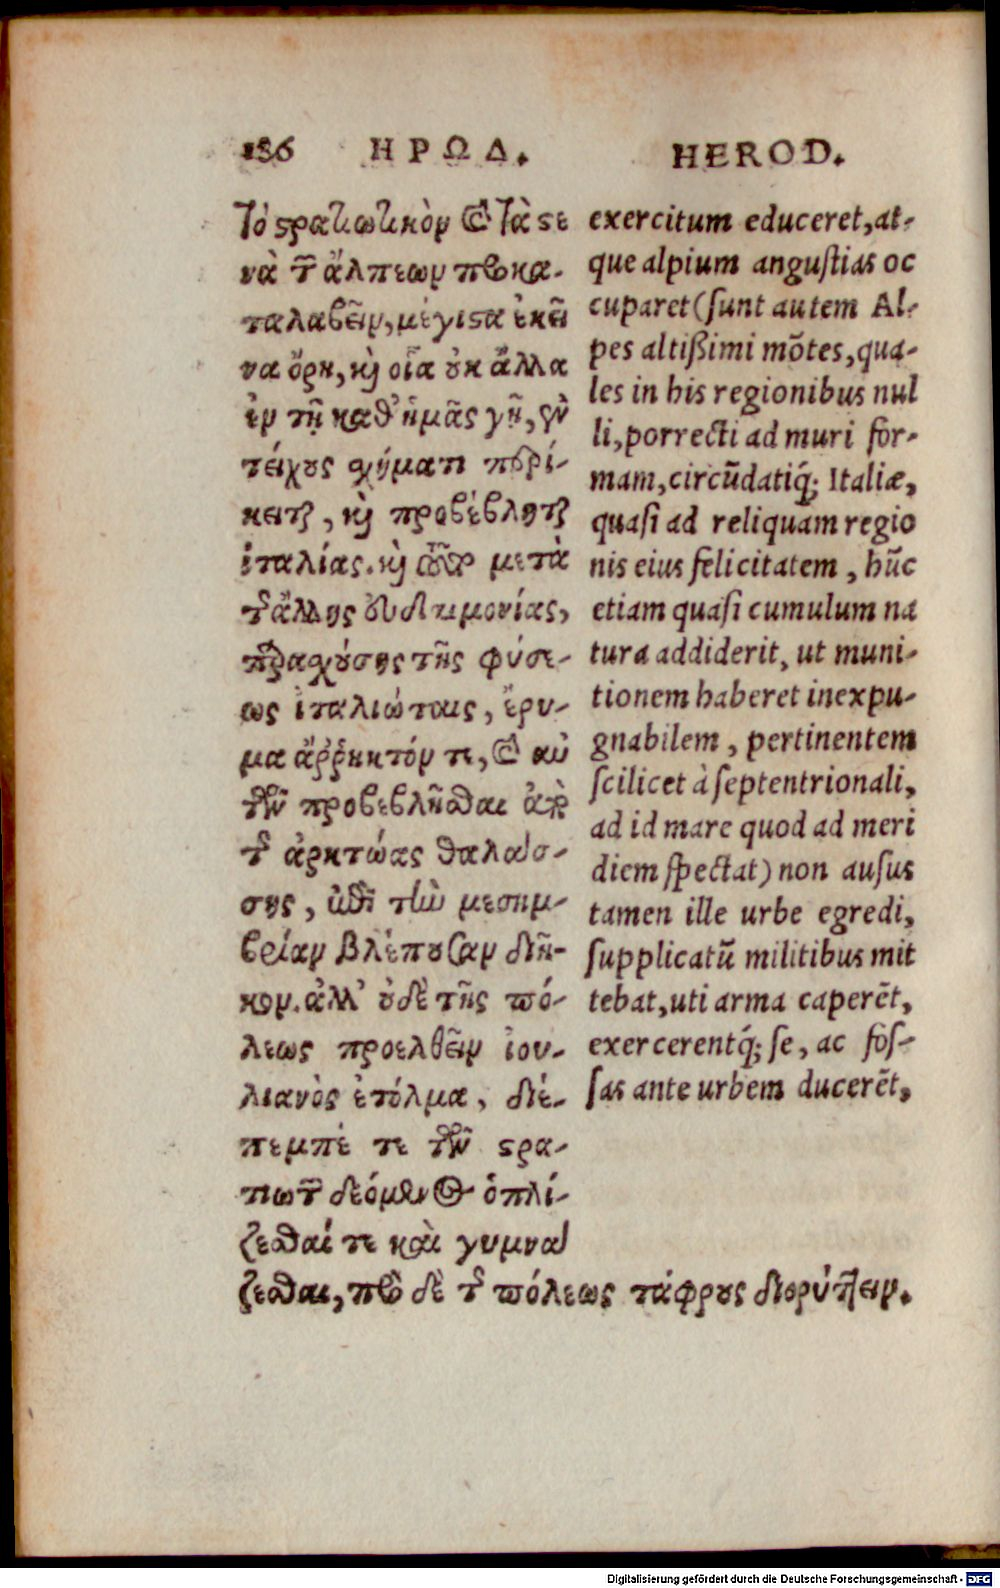 136 ΗΡΩΔ.
τὸ στρατιωτικὸν καὶ τὰ στε
νὰ τῶν ἄλπεων προκα-
ταλαβεῖν, μέγιστα ἐκεῖ
να ὄρη, καὶ οἷα οὐκ ἄλλα
ἐν τῇ καθ' ἡμᾶς γῇ, ἐν
τείχους σχήματι περί-
κειται, καὶ προβέβληται
ἰταλίας. καὶ τοῦτο μετὰ
τῆς ἄλλης εὐδαιμονίας,
παρασχούσης τῆς φύσε-
ως ἰταλιώταις, ἔρυ-
μα ἄῤῥηκτόν τι, καὶ αὐ
τῶν προβεβλῆσθαι ἀπὸ
τῆς ἀρκτώας θαλάσ-
σης, ἐπὶ τὴν μεσημ-
βρίαν βλέπουσαν διῆ-
κον. ἀλλ' οὐδὲ τῆς πό-
λεως προελθεῖν ἰου-
λιανὸς ἐτόλμα, διέ-
πεμπέ τε τῶν στρα-
τιωτῶν δεόμενος ὁπλί-
ζεσθαί τε καὶ γυμνά
ζεσθαι, πρὸ δὲ τῆς πόλεως τάφρους διορύττειν.
HEROD.
exercitum educeret, at-
que alpium angustias oc
cuparet (sunt autem Al-
pes altißimi mōtes, qua-
les in his regionibus nul
li, porrecti ad muri for-
mam, circūdatiq́; Italiæ,
quasi ad reliquam regio
nis eius felicitatem, hūc
etiam quasi cumulum na
tura addiderit, ut muni-
tionem haberet inexpu-
gnabilem, pertinentem
scilicet à septentrionali,
ad id mare quod ad meri
diem spectat) non ausus
tamen ille urbe egredi,
supplicatū militibus mit
tebat, uti arma caperēt,
exercerentq́; se, ac fos-
sas ante urbem ducerēt,
Digitalisierung gefördert durch die Deutsche Forschungsgemeinschaft - DFG